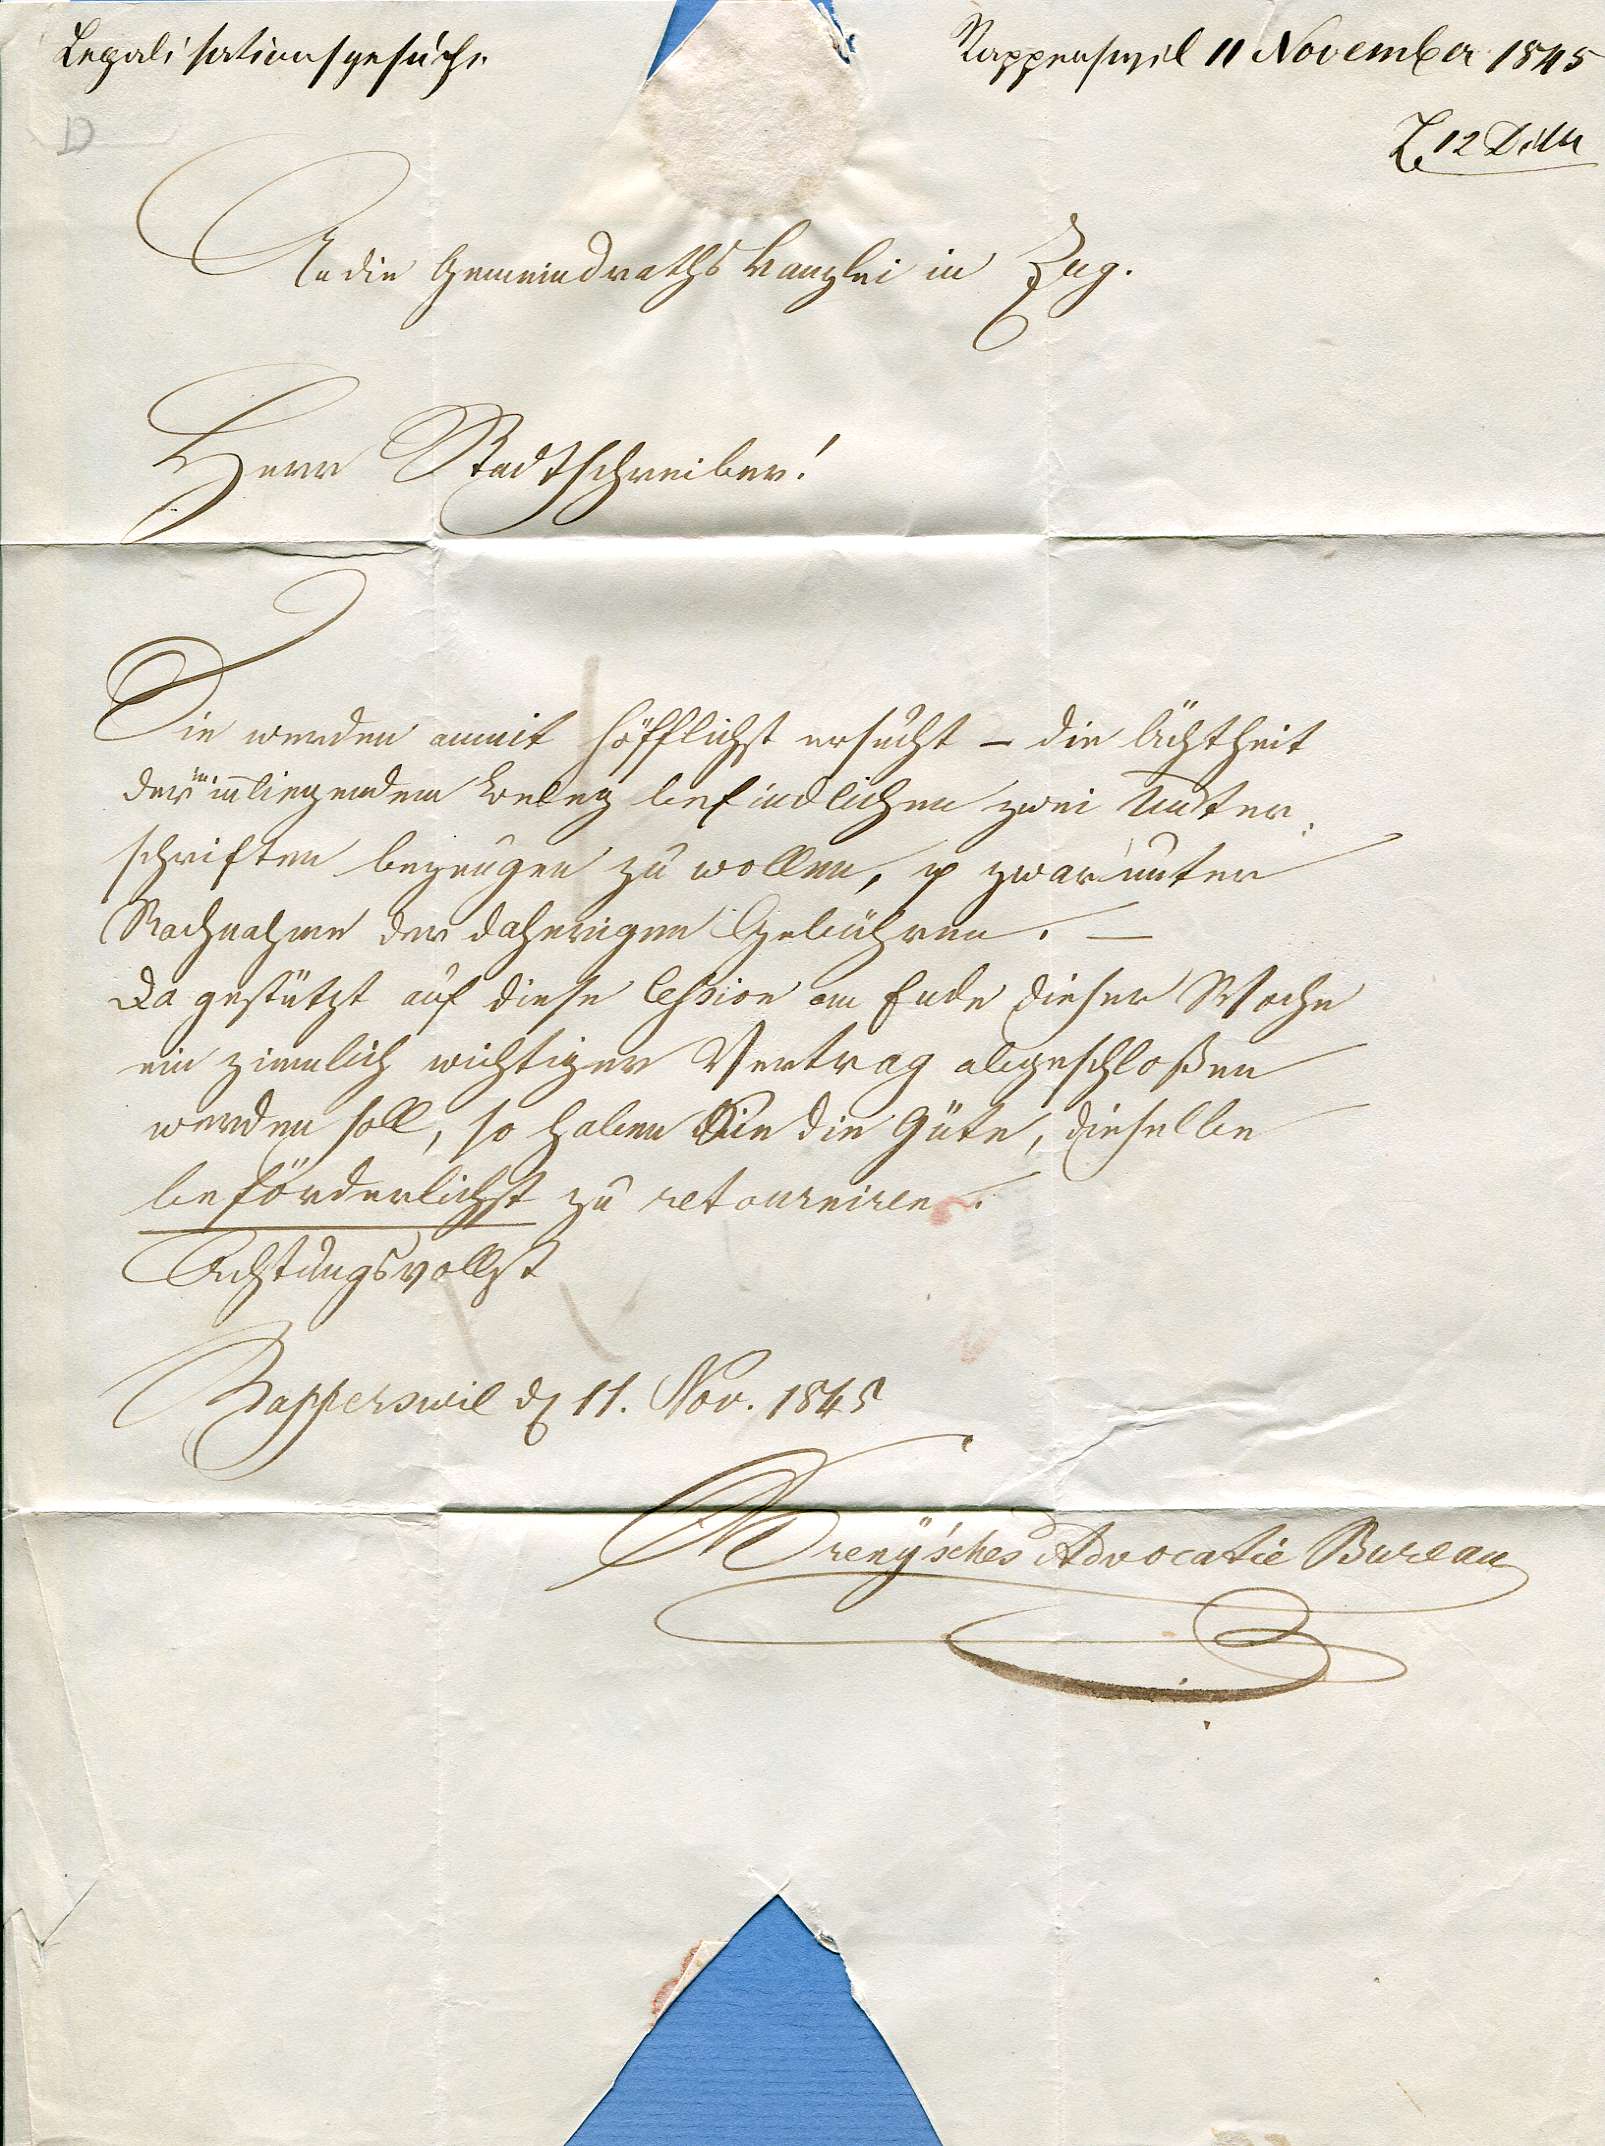 Legalisationsgesuch.
Rapperswyl 11 November 1845
12 Dito
D
An die Gemeindraths kanzlei in Zug.
Herr Stadtschreiber!
Sie werden anmit höfflichst ersucht – die Ächtheit
der im inliegendem beleg befindlichen zwei Unter-
schriften bezeugen zu wollen, & zwar unter
Nachnahme der daherigen Gebühren. —
Da gestützt auf diese Cession am Ende dieser Woche
ein ziemlich wichtiger Vertrag abgeschloßen
werden soll, so haben Sie die Güte, dieselbe
beförderlichst zu retourniren.
Achtungsvollst
Rapperswil d 11. Nov. 1845
Advocatie Bureau